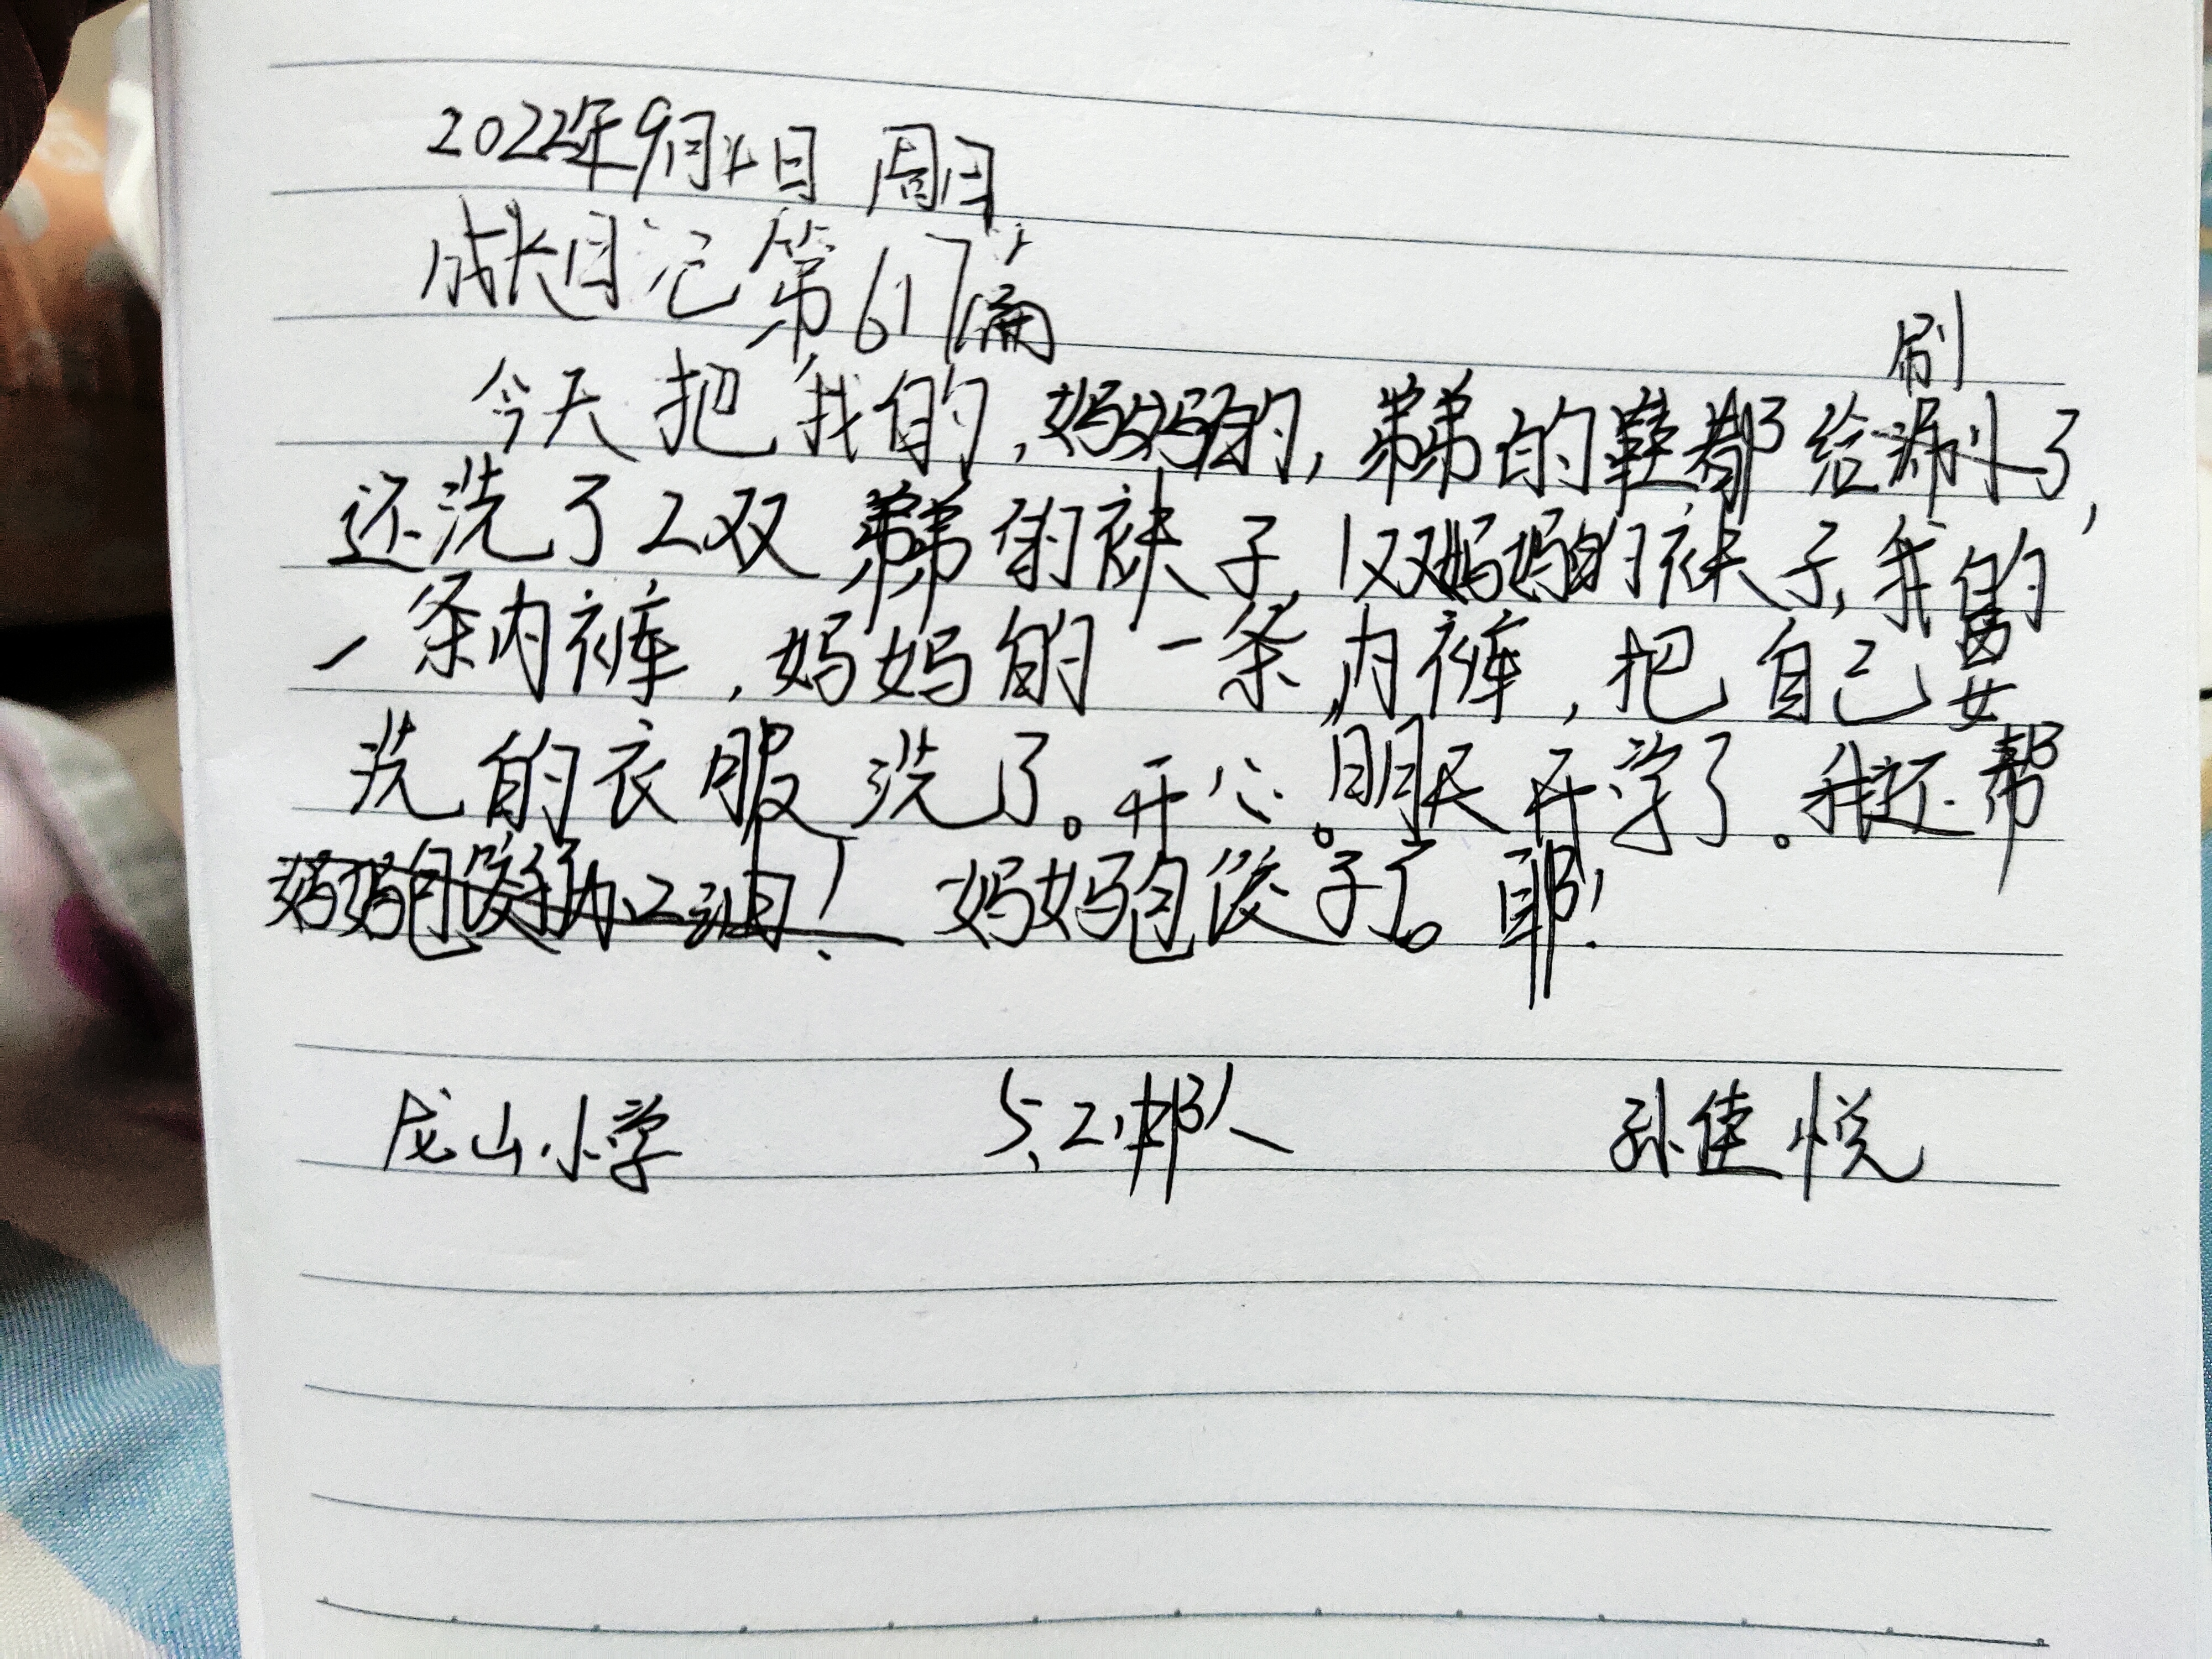 2022年9月4日 周日
成长日记第617篇
今天把我的,妈妈的,弟弟的鞋都给刷了,
还洗了2双弟弟的袜子,1双妈妈的袜子,我的
一条内裤,妈妈的一条内裤,把自己要
洗的衣服洗了。开心。明天开学了。我还帮
妈妈包饺子加油! 妈妈包饺子了。耶!
龙山小学 5、2邦人 孙佳悦